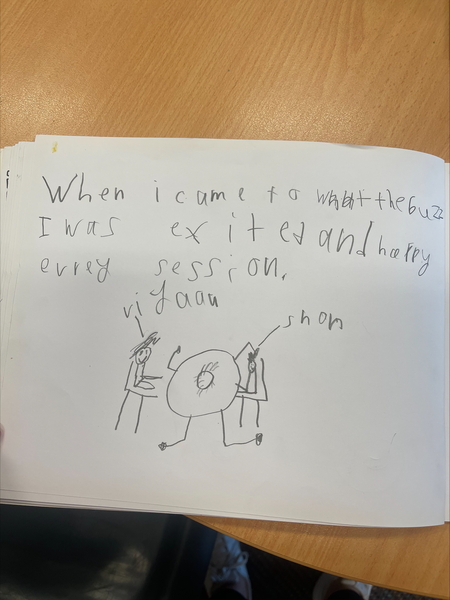 When i came to what the buzz
I was exited and happy
evrey session.
rifaau
shon